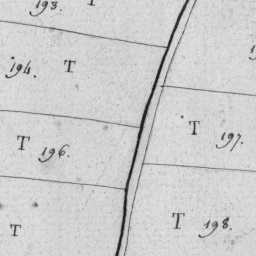 193. T
194. T
T 197.
T 196.
T 198.
T